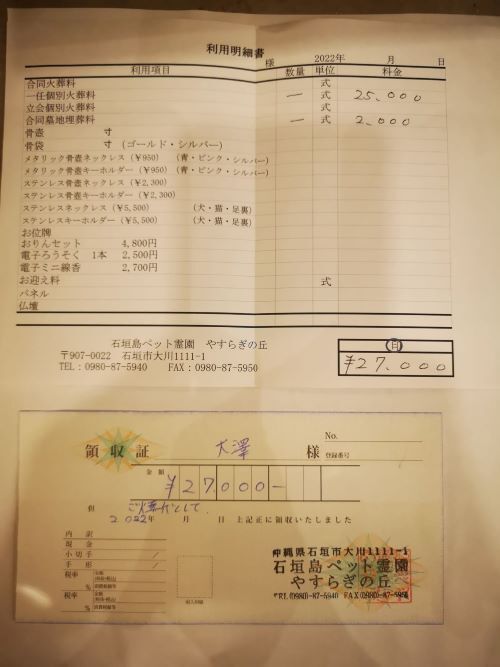 利用明細書
様 2022年 月 日
利用項目 数量 単位 料金
合同火葬料 式
一任個別火葬料 一 式 25,000
立会個別火葬料 式
合同墓地埋葬料 一 式 2,000
骨壺 寸
骨袋 寸 (ゴールド・シルバー)
メタリック骨壺ネックレス(¥950) (青・ピンク・シルバー)
メタリック骨壺キーホルダー(¥950) (青・ピンク・シルバー)
ステンレス骨壺ネックレス(¥2,300)
ステンレス骨壺キーホルダー(¥2,300)
ステンレスネックレス(¥5,500) (犬・猫・足裏)
ステンレスキーホルダー(¥5,500) (犬・猫・足裏)
お位牌
おりんセット 4,800円
電子ろうそく 1本 2,500円
電子ミニ線香 2,700円
お迎え料 式
パネル
仏壇
石垣島ペット霊園 やすらぎの丘
〒907-0022 石垣市大川1111-1
TEL:0980-87-5940 FAX:0980-87-5950
¥27,000
No.
領収証 大澤 様 登録番号
金額
¥27,000-
但
2022年 月 日 上記正に領収いたしました
内訳
現金
小切手 /
手形 /
税率 %
税率 %
収入印紙
沖縄県石垣市大川1111-1
石垣島ペット霊園
やすらぎの丘
TEL(0980)-87-5940 FAX(0980)-87-5950